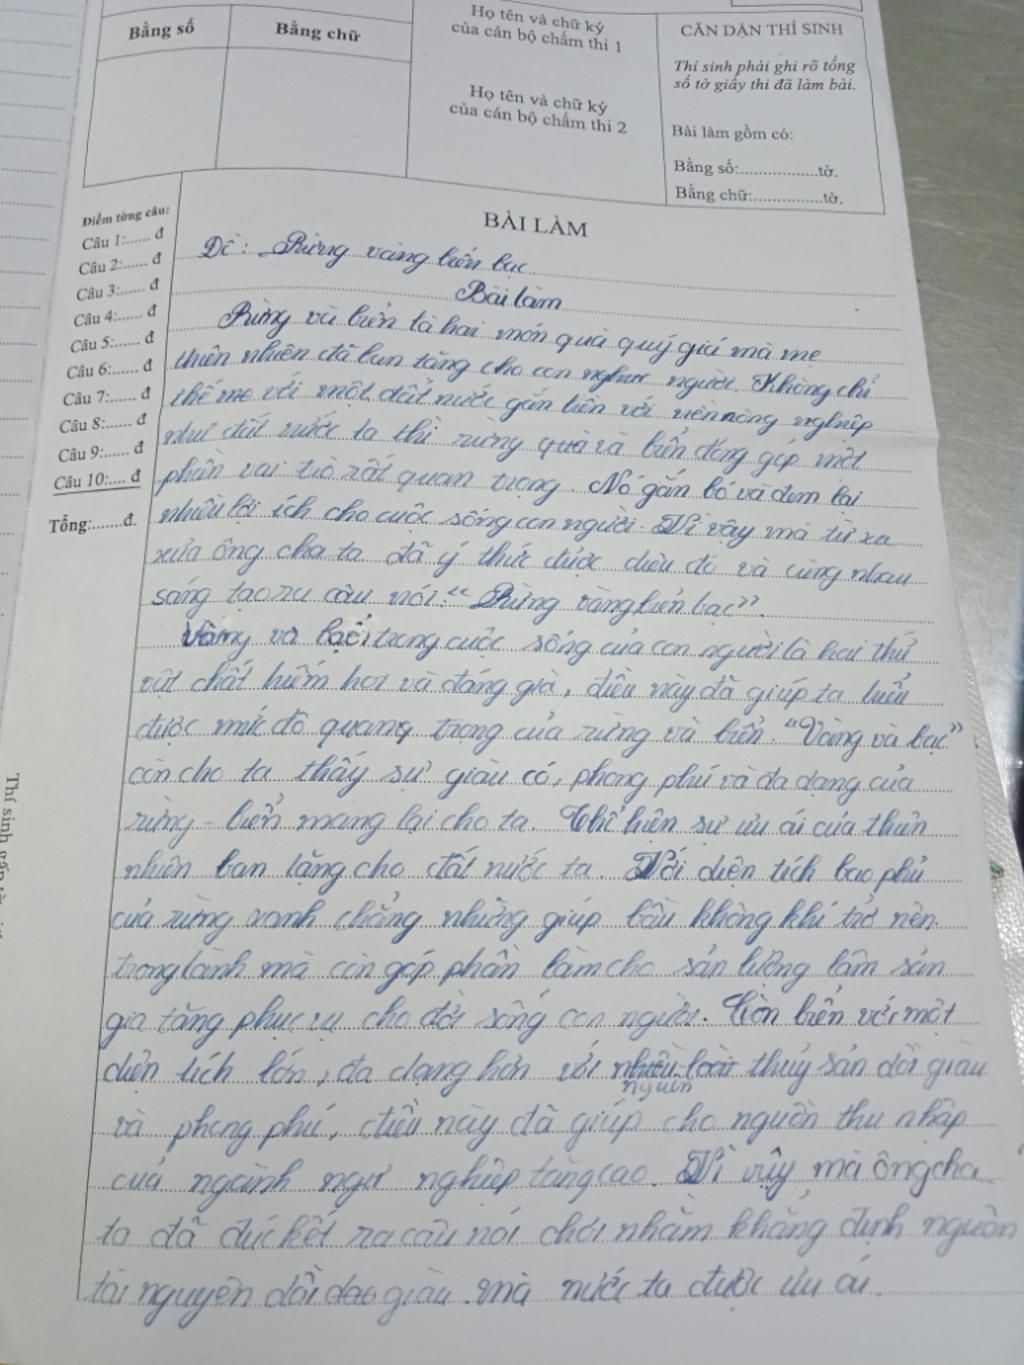 Bằng số
Bằng chữ
Họ tên và chữ ký
của cán bộ chấm thi 1
Họ tên và chữ ký
của cán bộ chấm thi 2
CĂN DẶN THÍ SINH
Thí sinh phải ghi rõ tổng
số tờ giấy thi đã làm bài.
Bài làm gồm có:
Bằng số:.................tờ.
Bằng chữ:...............tờ.
Điểm từng câu:
Câu 1:...... đ
Câu 2:...... đ
Câu 3:...... đ
Câu 4:...... đ
Câu 5:...... đ
Câu 6:...... đ
Câu 7:...... đ
Câu 8:...... đ
Câu 9:...... đ
Câu 10:.... đ
Tổng:......đ.
BÀI LÀM
Đề: Rừng vàng biển bạc
Bài làm
Rừng và biển là hai món quà quý giá mà mẹ
thiên nhiên đã ban tặng cho con người. Không chỉ
thế mà với một đất nước gắn liền với nền nông nghiệp
như đất nước ta thì rừng quà và biển đóng góp một
phần vai trò rất quan trọng. Nó gắn bó và đem lại
nhiều lợi ích cho cuộc sống con người. Vì vậy mà từ xa
xưa ông cha ta đã ý thức được điều đó và cùng nhau
sáng tạo ra câu nói: "Rừng vàng biển bạc".
Vàng và bạc trong cuộc sống của con người là hai thứ
rất chất hiếm hoi và đáng giá, điều này đã giúp ta hiểu
được mức độ quang trọng của rừng và biển. "Vàng và bạc"
còn cho ta thấy sự giàu có, phong phú và đa dạng của
rừng - biển mang lại cho ta. Thể hiện sự ưu ái của thiên
nhiên ban tặng cho đất nước ta. Với diện tích bao phủ
của rừng xanh chẳng những giúp bầu không khí trở nên
trong lành mà còn góp phần làm cho sản lượng lâm sản
gia tăng phục vụ cho đời sống con người. Còn biển với một
diện tích lớn, đa dạng hơn với nguồn thủy sản dồi giàu
và phong phú, điều này đã giúp cho nguồn thu nhập
của ngành ngư nghiệp tăng cao. Vì vậy mà ông cha
ta đã đúc kết ra câu nói chơi nhằm khẳng định nguồn
tài nguyên dồi dao giàu mà nước ta được ưu ái.